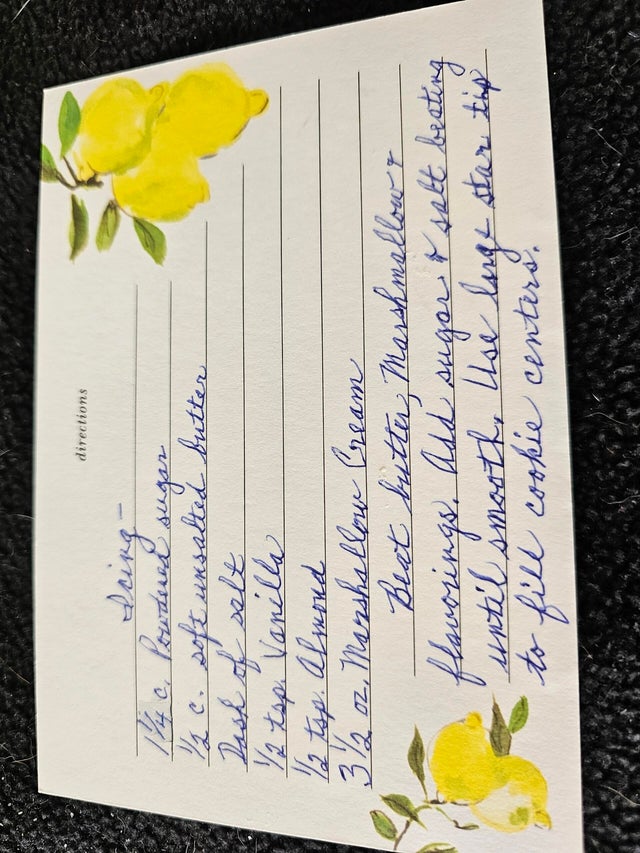 directions
Icing -
1 1/4 c. Powdered sugar
1/2 c. soft unsalted butter
Dash of salt
1/2 tsp. Vanilla
1/2 tsp. Almond
3 1/2 oz. Marshmallow Cream
Beat butter, Marshmallow &
flavorings. Add sugar & salt beating
until smooth. Use large star tip
to fill cookie centers.